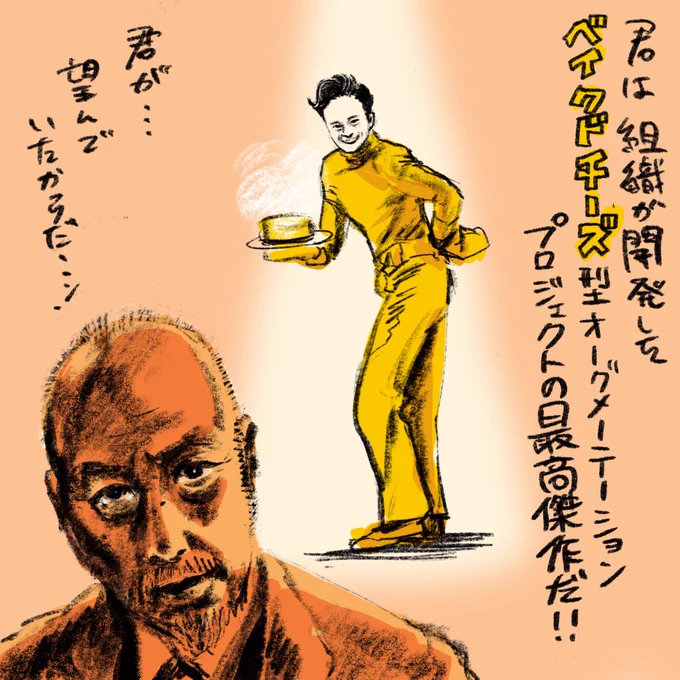 君は 組織が開発した
ベイクドチーズ型オーグメーテーション
プロジェクトの最高傑作だ!!
君が…
望んで
いたからだ・・シン.